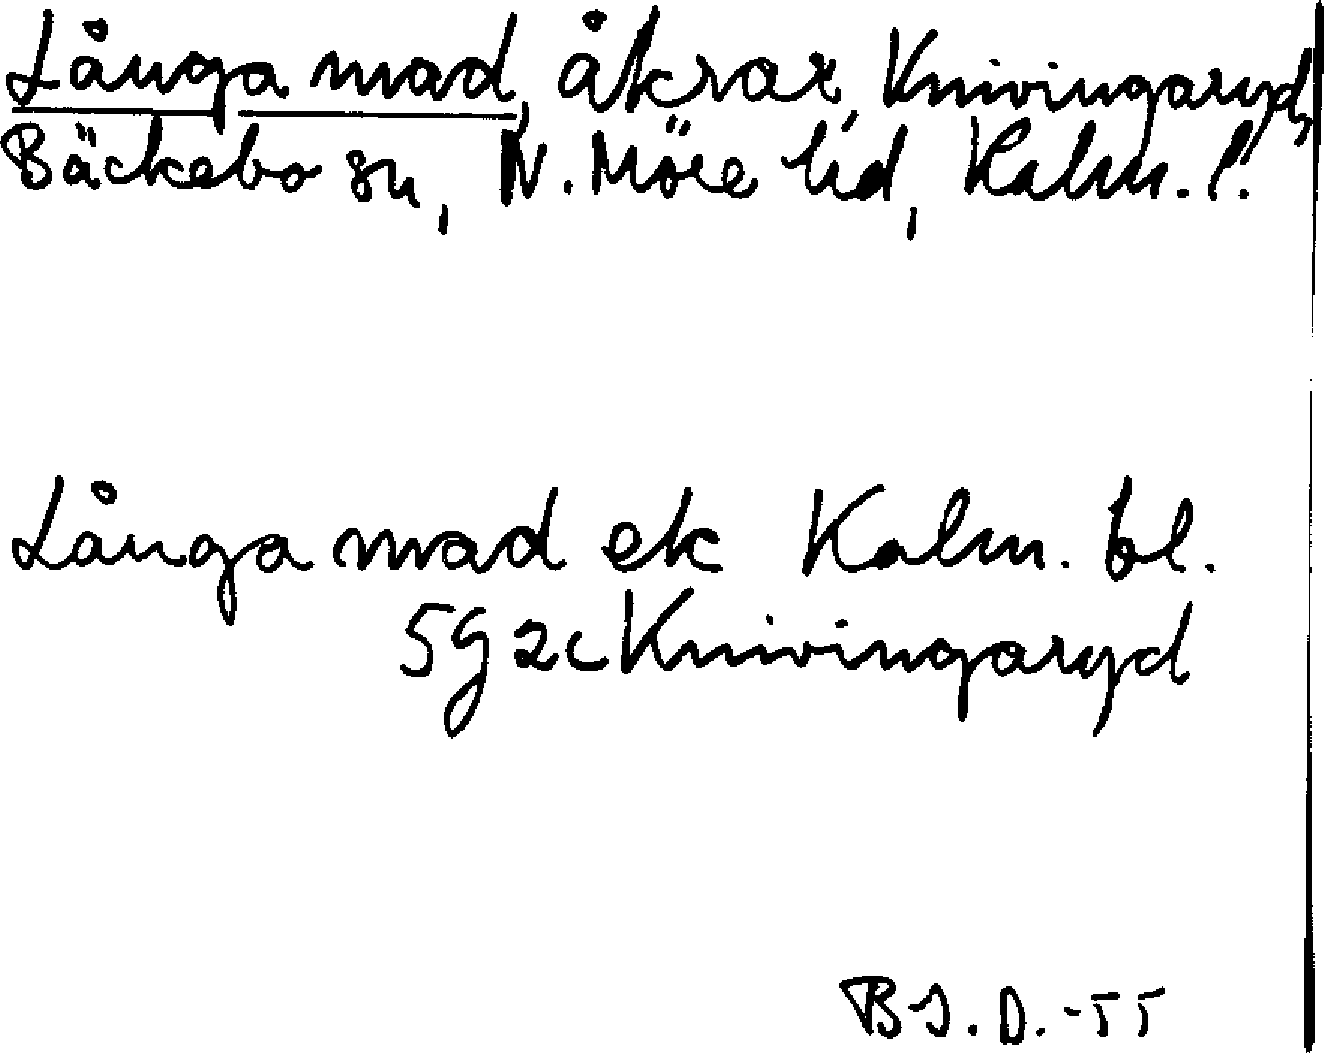 Långa mad, åkrar, Knivingaryd,
Bäckebo sn, N. Möre hd, Kalm. l.
Långa mad ek Kalm. bl.
5g2c Knivingaryd
BJ.D.-55